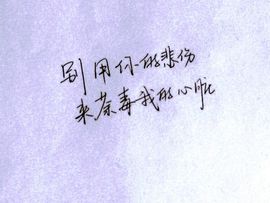 别用你的悲伤
来荼毒我的心脏